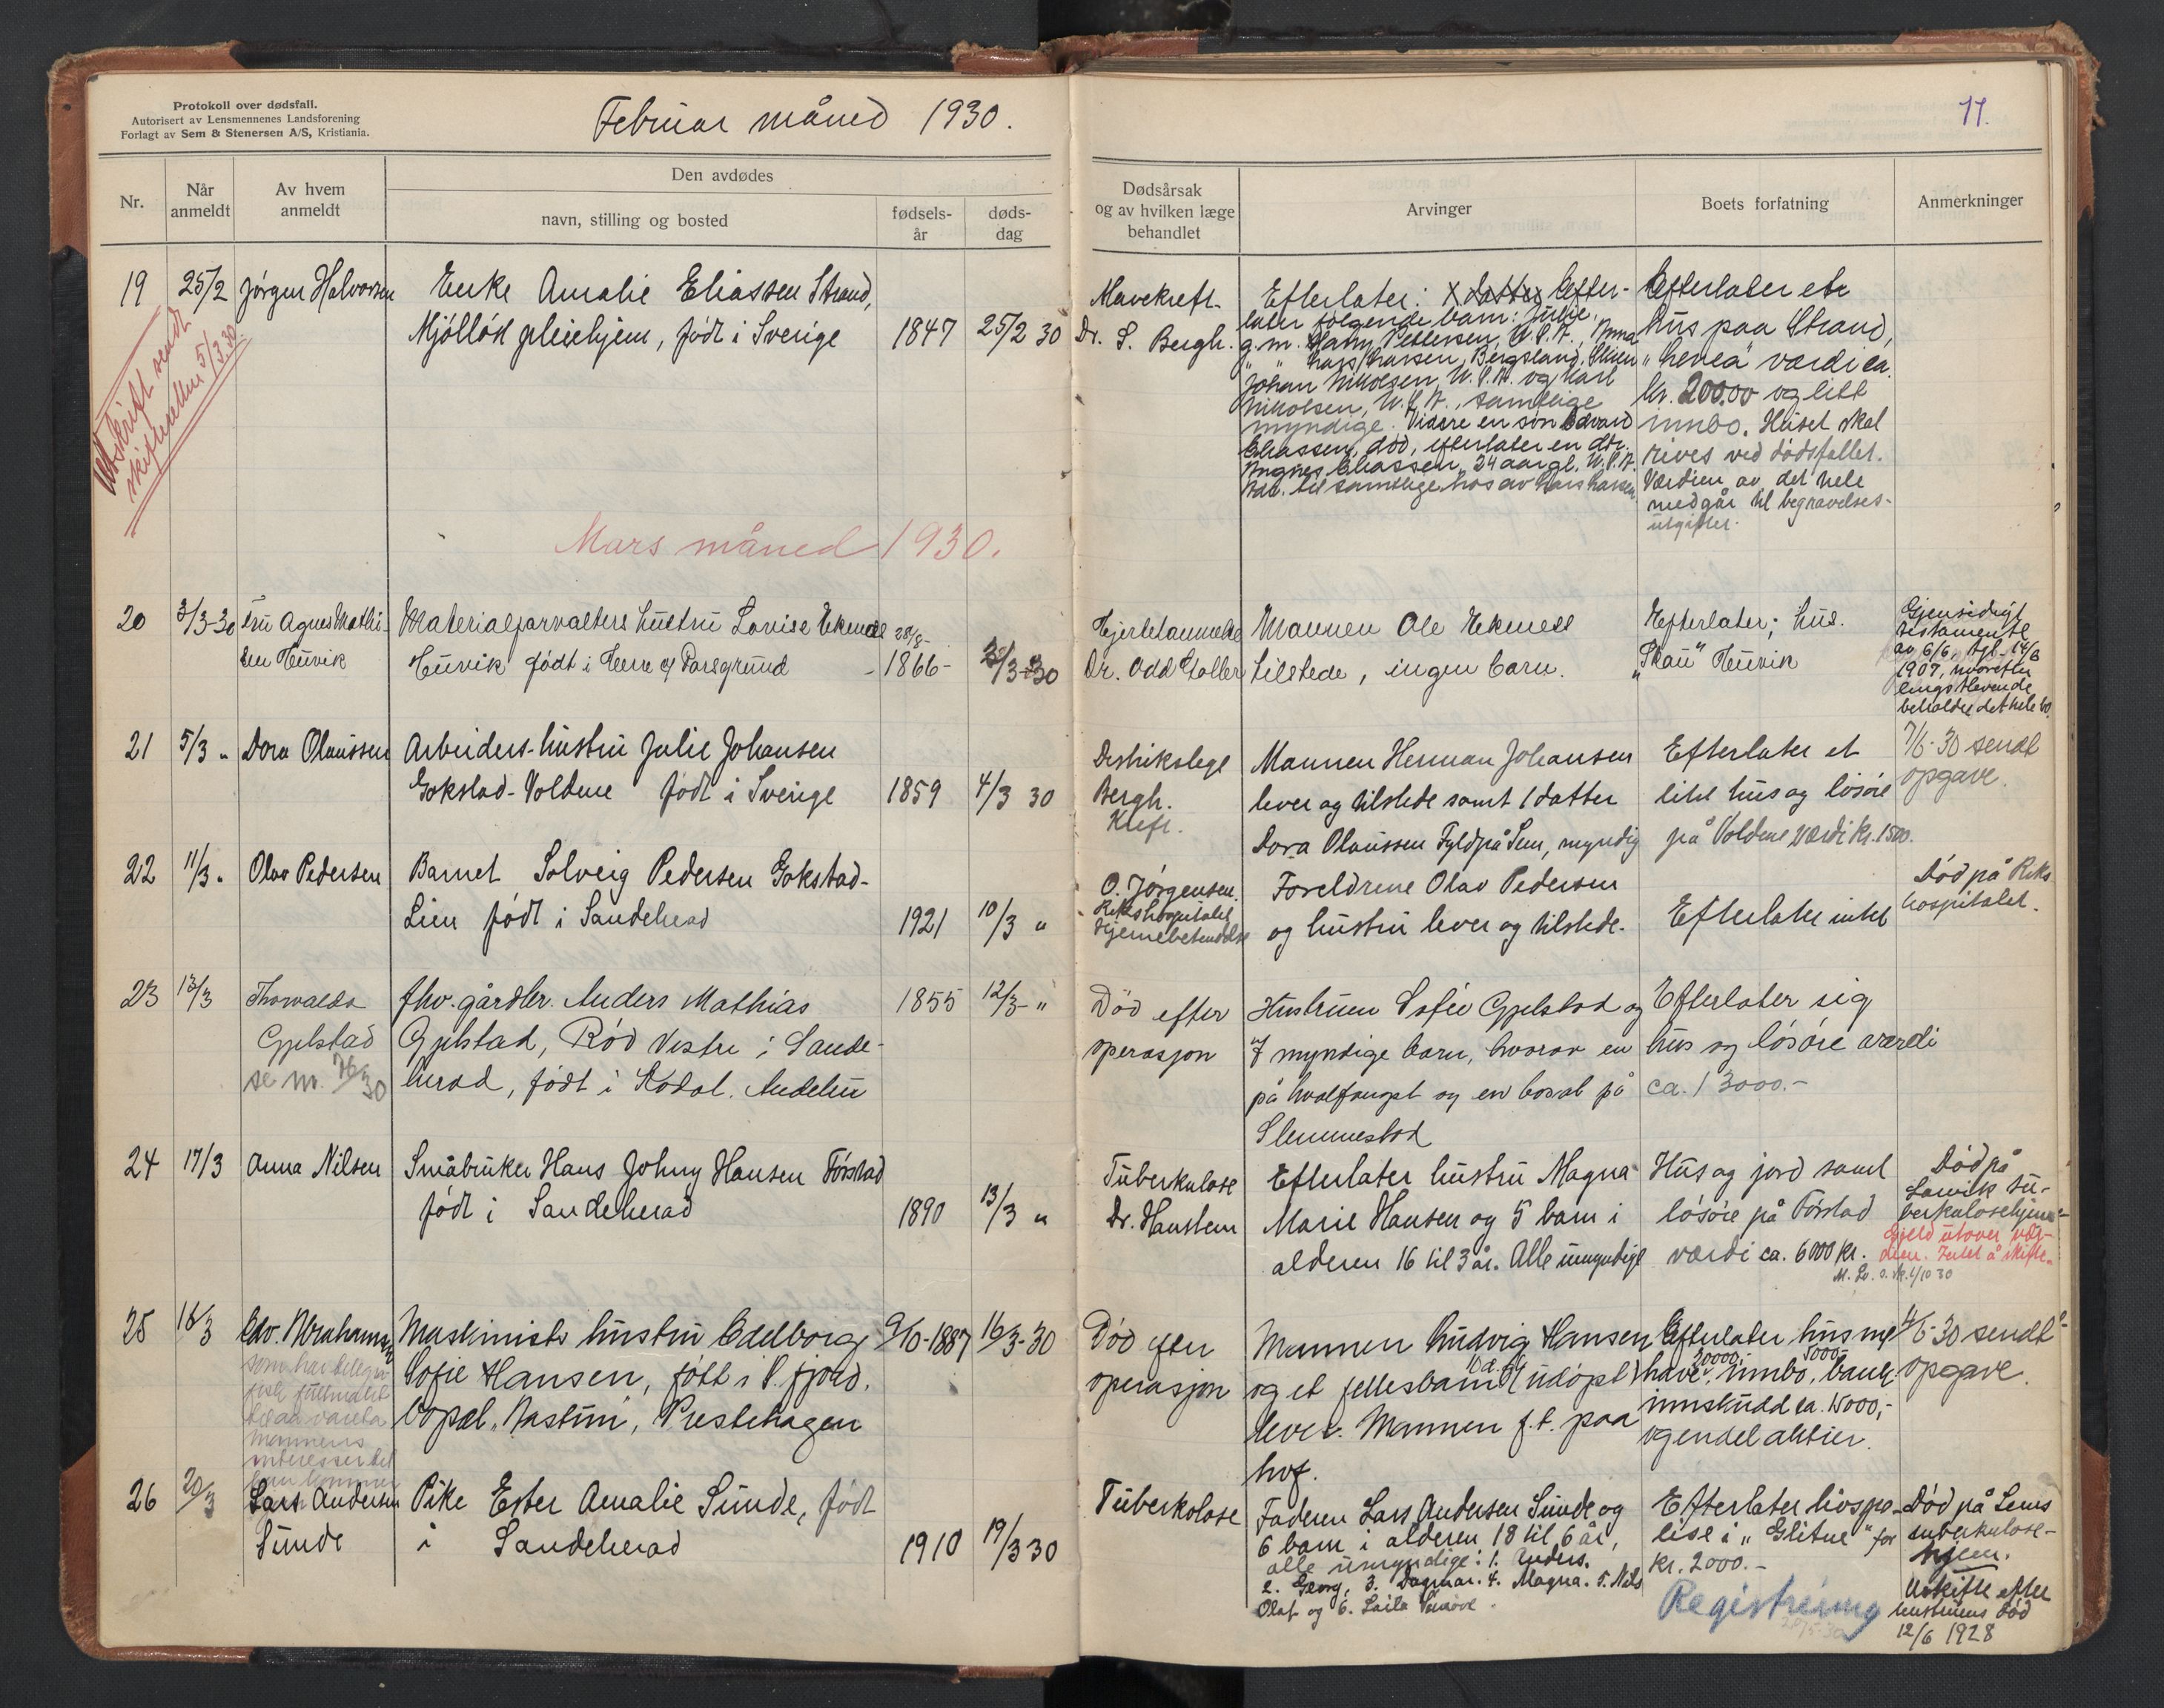 Protokoll over dødsfall.
Autorisert av Lensmennenes Landsforening
Forlagt av Sem & Stenersen A/S, Kristiania.
Februar måned 1930.
11.
Nr.
Når anmeldt
Av hvem anmeldt
Den avdødes
navn, stilling og bosted
fødsels-år
døds-dag
Dødsårsak og av hvilken læge behandlet
Arvinger
Boets forfatning
Anmerkninger
19
25/2
Jørgen Halvorsen
Enke Amalie Eliassen Strand,
Mjölløst pleiehjem, født i Sverige
1847
25/2 30
Mavekreft.
Dr. S. Bergh.
Efterlater: datter Efter-
later følgende barn: Julie,
g.m. Harry Pettersen, U.S.A., Anna
" " Lars Larsen, Bergsland,
Johan Nikolsen, U.S.A. og Karl
Nikolsen, U.S.A., samtlige
myndige. Videre en søn Edvard
Eliassen, død, efterlater en dtr.
Agnes Eliassen, 24 aar gl. U.S.A.
Adr. til samtlige hos av Lars Larsen
Efterlater et
hus paa Strand,
værdi ca.
kr. 200.00 og litt
innbo. Huset skal
rives ved dødsfallet.
Værdien av det hele
medgår til begravelses-
utgifter.
Avskrift sendt
skifteretten 5/3.30.
Mars måned 1930.
20
3/3-30
Fru Agnes Mathi-
sen Huvik
Materialforvalters hustru Lovise Eknæs
Huvik født i Herre pr Porsgrund
28/8-
1866-
3/3-30
Hjertelammelse
Dr. Odd Holler
Mannen Ole Ekness
tilstede, ingen barn.
Efterlater; hus.
"Skau" Huvik
Gjensidigt
testamente
av 6/6, tgl. 14/6
1907, hvorefter
lengstlevende
beholder det hele bo.
21
5/3 "
Dora Olaussen
Arbeiders-hustru Julie Johansen
Gokstad-Voldene født i Sverige
1859
4/3 30
Distrikslege
Bergh.
Kreft.
Mannen Herman Johansen
lever og tilstede samt 1 datter
Dora Olaussen Fyldpå Sem, myndig
Efterlater et
litet hus og løsøre
på Voldene værdi kr. 1500.
7/6-30 sendt
opgave.
22
11/3 "
Olav Pedersen
Barnet Solveig Pedersen Gokstad-
Lien født i Sandeherad
1921
10/3 "
O. Jørgensen.
Rikshospitalet
Hjernebetendelse
Foreldrene Olav Pedersen
og hustru lever og tilstede.
Efterlater intet
Død på Riks
hospitalet.
23
13/3
Thorvalda
Gjelstad
se nr. 76/30
fhv. gårdbr. Anders Mathias
Gjelstad, Rød Vestre i Sande-
herad, født i Kodal. Andebu
1855
12/3- "
Død efter
operasjon
Hustruen Sofie Gjelstad og
7 myndige barn, hvorav en
på hvalfangst og en bosat på
Slemmestad
Efterlater sig
hus og løsøre værdi
ca. 13000.-
24
17/3
Anna Nilsen
Småbruker Hans Johny Hansen Førstad
født i Sandeherad
1890
13/3 "
Tuberkulose
Dr. Hanstem
Efterlater hustru Magna
Marie Hansen og 5 barn i
alderen 16 til 3 år. Alle umyndige
Hus og jord samt
løsøre på Førstad
værdi ca. 6000 kr.
Død på
Larvik tu-
berkulosehjem
Gjeld utover vær-
dien. Intet å skifte.
25
18/3
Edv. Abrahamsen
som har telegra-
fisk fullmakt
til aa vareta
mannens
interesser til
han kommer
Maskinists hustru Edelborg
Sofie Hansen, født i S. fjord.
bopæl "Nastun", Prestehagen
9/10-1887
16/3-30
Død efter
operasjon
Mannen Ludvig Hansen
og et fellesbarn (udøpt)
10 d. gl.
lever. Mannen f.t. paa
hvf.
Efterlater hus med
have, innbo, bank-
20000.- 5000.-
innskudd ca. 15000,-
og endel aktier.
4/6-30 sendt
opgave.
26
20/3
Lars Andersen
Sunde
Pike Ester Amalie Sunde, født
i Sandeherad
1910
19/3 30
Tuberkolose
Faderen Lars Andersen Sunde og
6 barn i alderen 18 til 6 år,
alle umyndige: 1. Anders.
2. Georg, 3. Dagmar. 4. Magna. 5. Nils
Olaf og 6. Laila
Efterlater livspo-
lise i "Glitne" for
kr. 2000.-
Registrering
Død på Sems
tuberkulose-
hjem.
Uskifte efter
hustruens død
12/6 1928